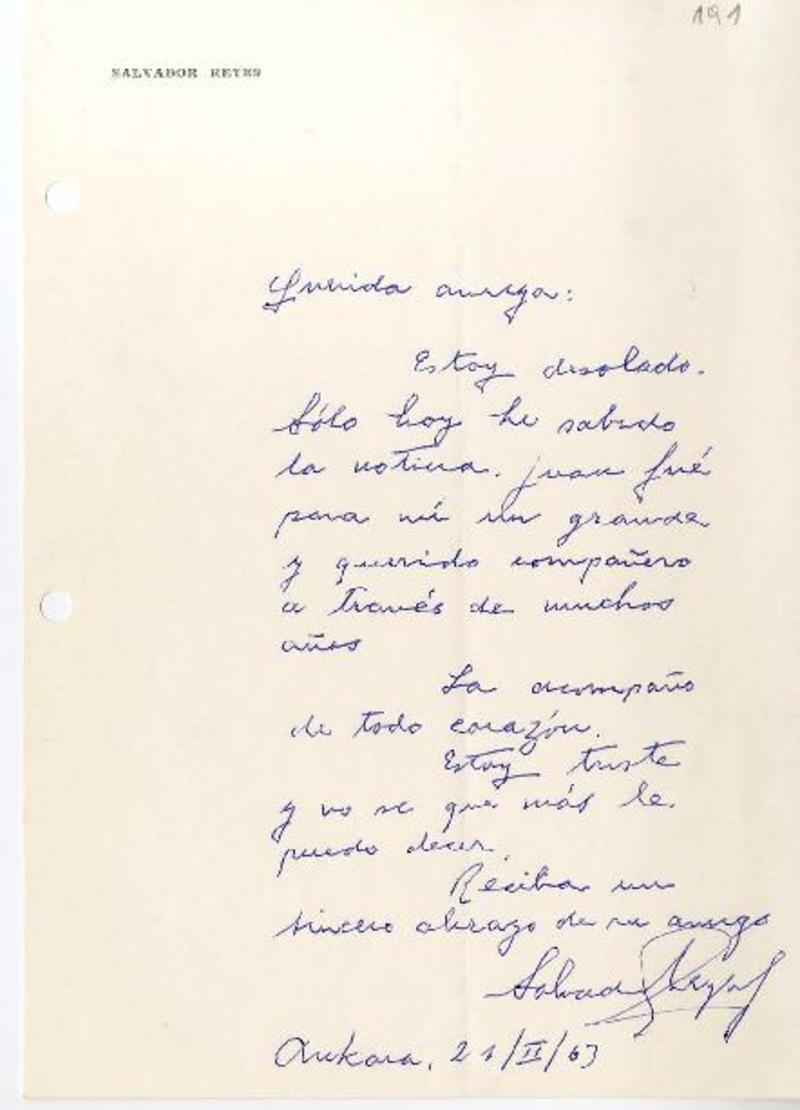 191
SALVADOR REYES
Querida amiga:
Estoy desolado.
Sólo hoy he sabido
la noticia. Juan fué
para mí un grande
y querido compañero
a través de muchos
años
La acompaño
de todo corazón.
Estoy triste
y no se que más le
puedo decir.
Reciba un
sincero abrazo de su amigo
Salvador Reyes
Ankara, 21/II/63